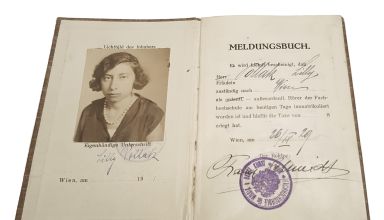 Lichtbild des Inhabers
Eigenhändige Unterschrift
Lilly Pollak
Wien, am 19
MELDUNGSBUCH.
Es wird hiemit bescheinigt, daß
Herr Pollak Lilly
Fräulein
zuständig nach Wien
als ordentl. - außerordentl. Hörer der Fach-
hochschule am heutigen Tage immatrikuliert
worden ist und hiefür die Taxe von S
erlegt hat.
Wien, am 26/IX 29
Der Rektor: